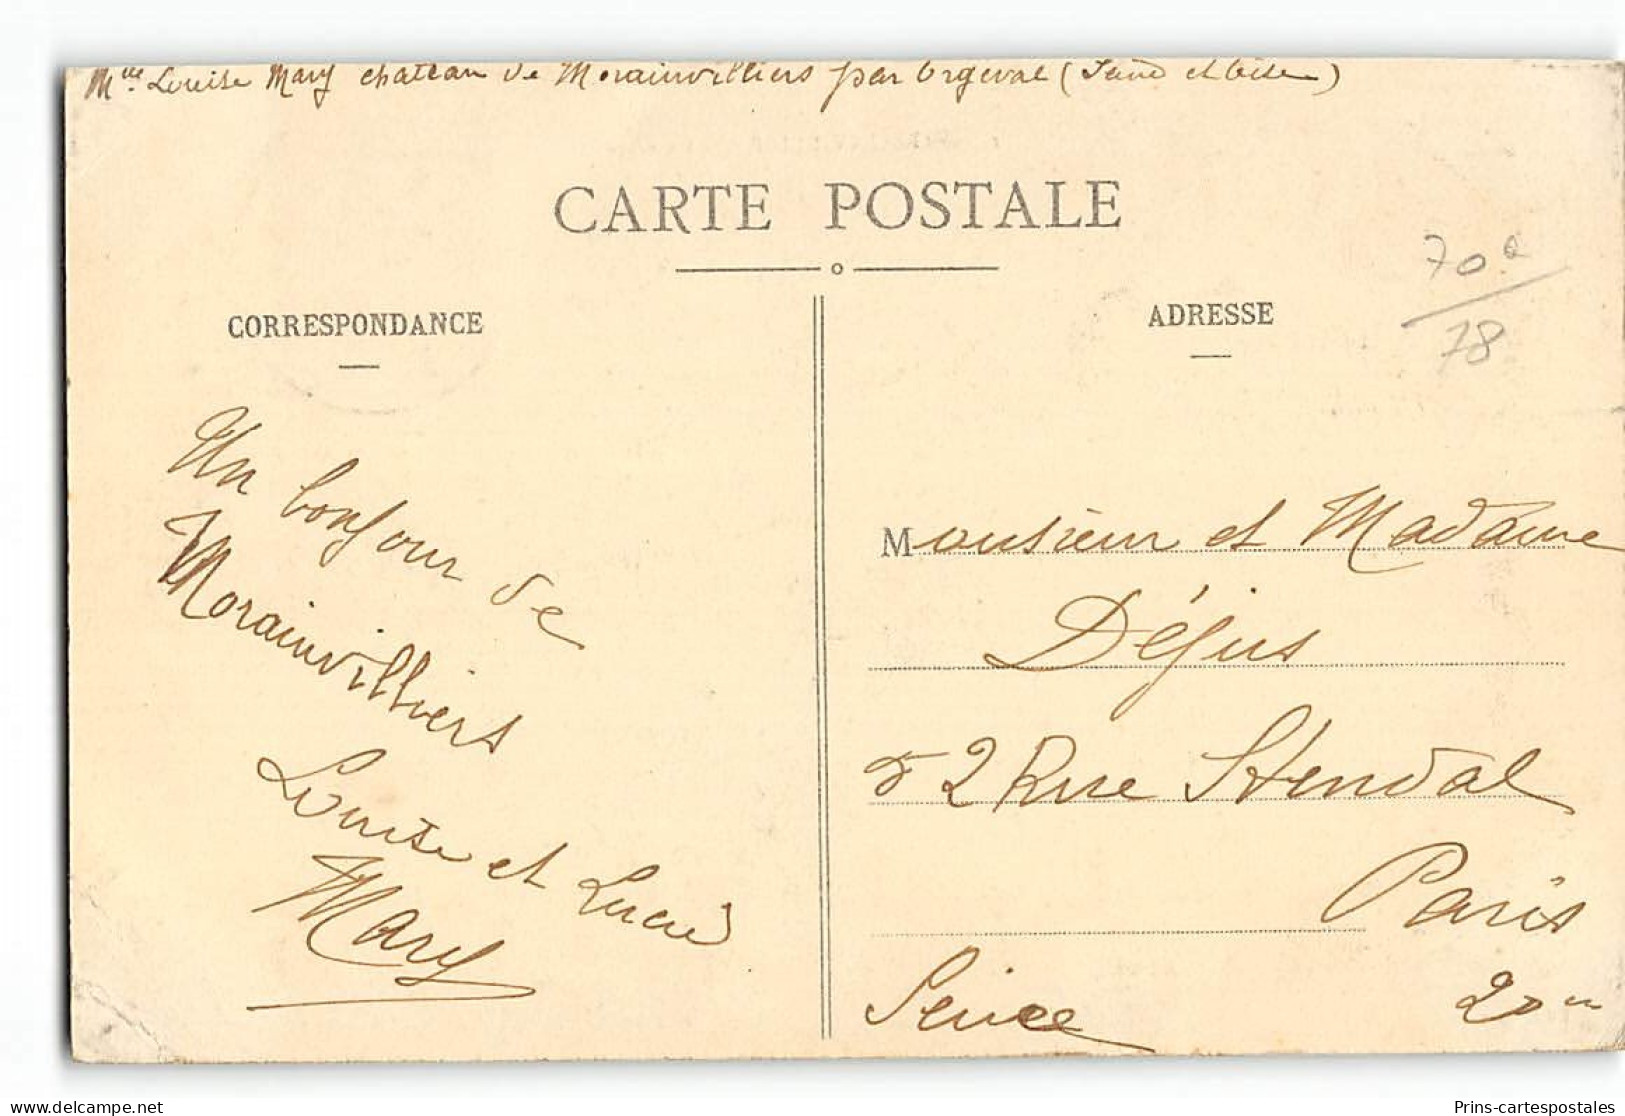 Mlle Louise Mary chateau de Morainvilliers par Orgeval (Seine et Oise)
CARTE POSTALE
CORRESPONDANCE
ADRESSE
70
78
Un bonjour de
Morainvilliers
Louise et Lucie
Mary
Monsieur et Madame
Déjus
2 Rue Stendal
Paris
Seine
20
www.delcampe.net
Prins-cartespostales